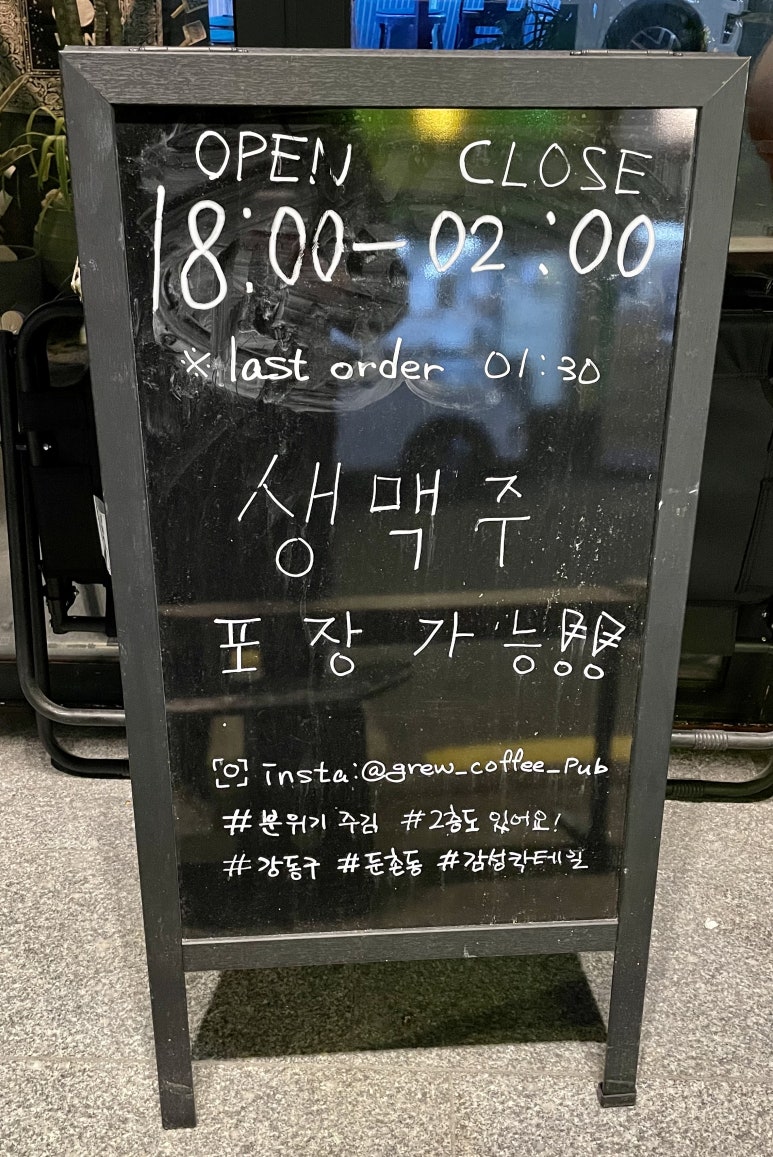 OPEN CLOSE
18:00-02:00
※ last order 01:30
생맥주
포장가능!!
insta:@grew_coffee_Pub
#분위기 주김 #2층도 있어요!
#강동구 #둔촌동 #감성칵테일